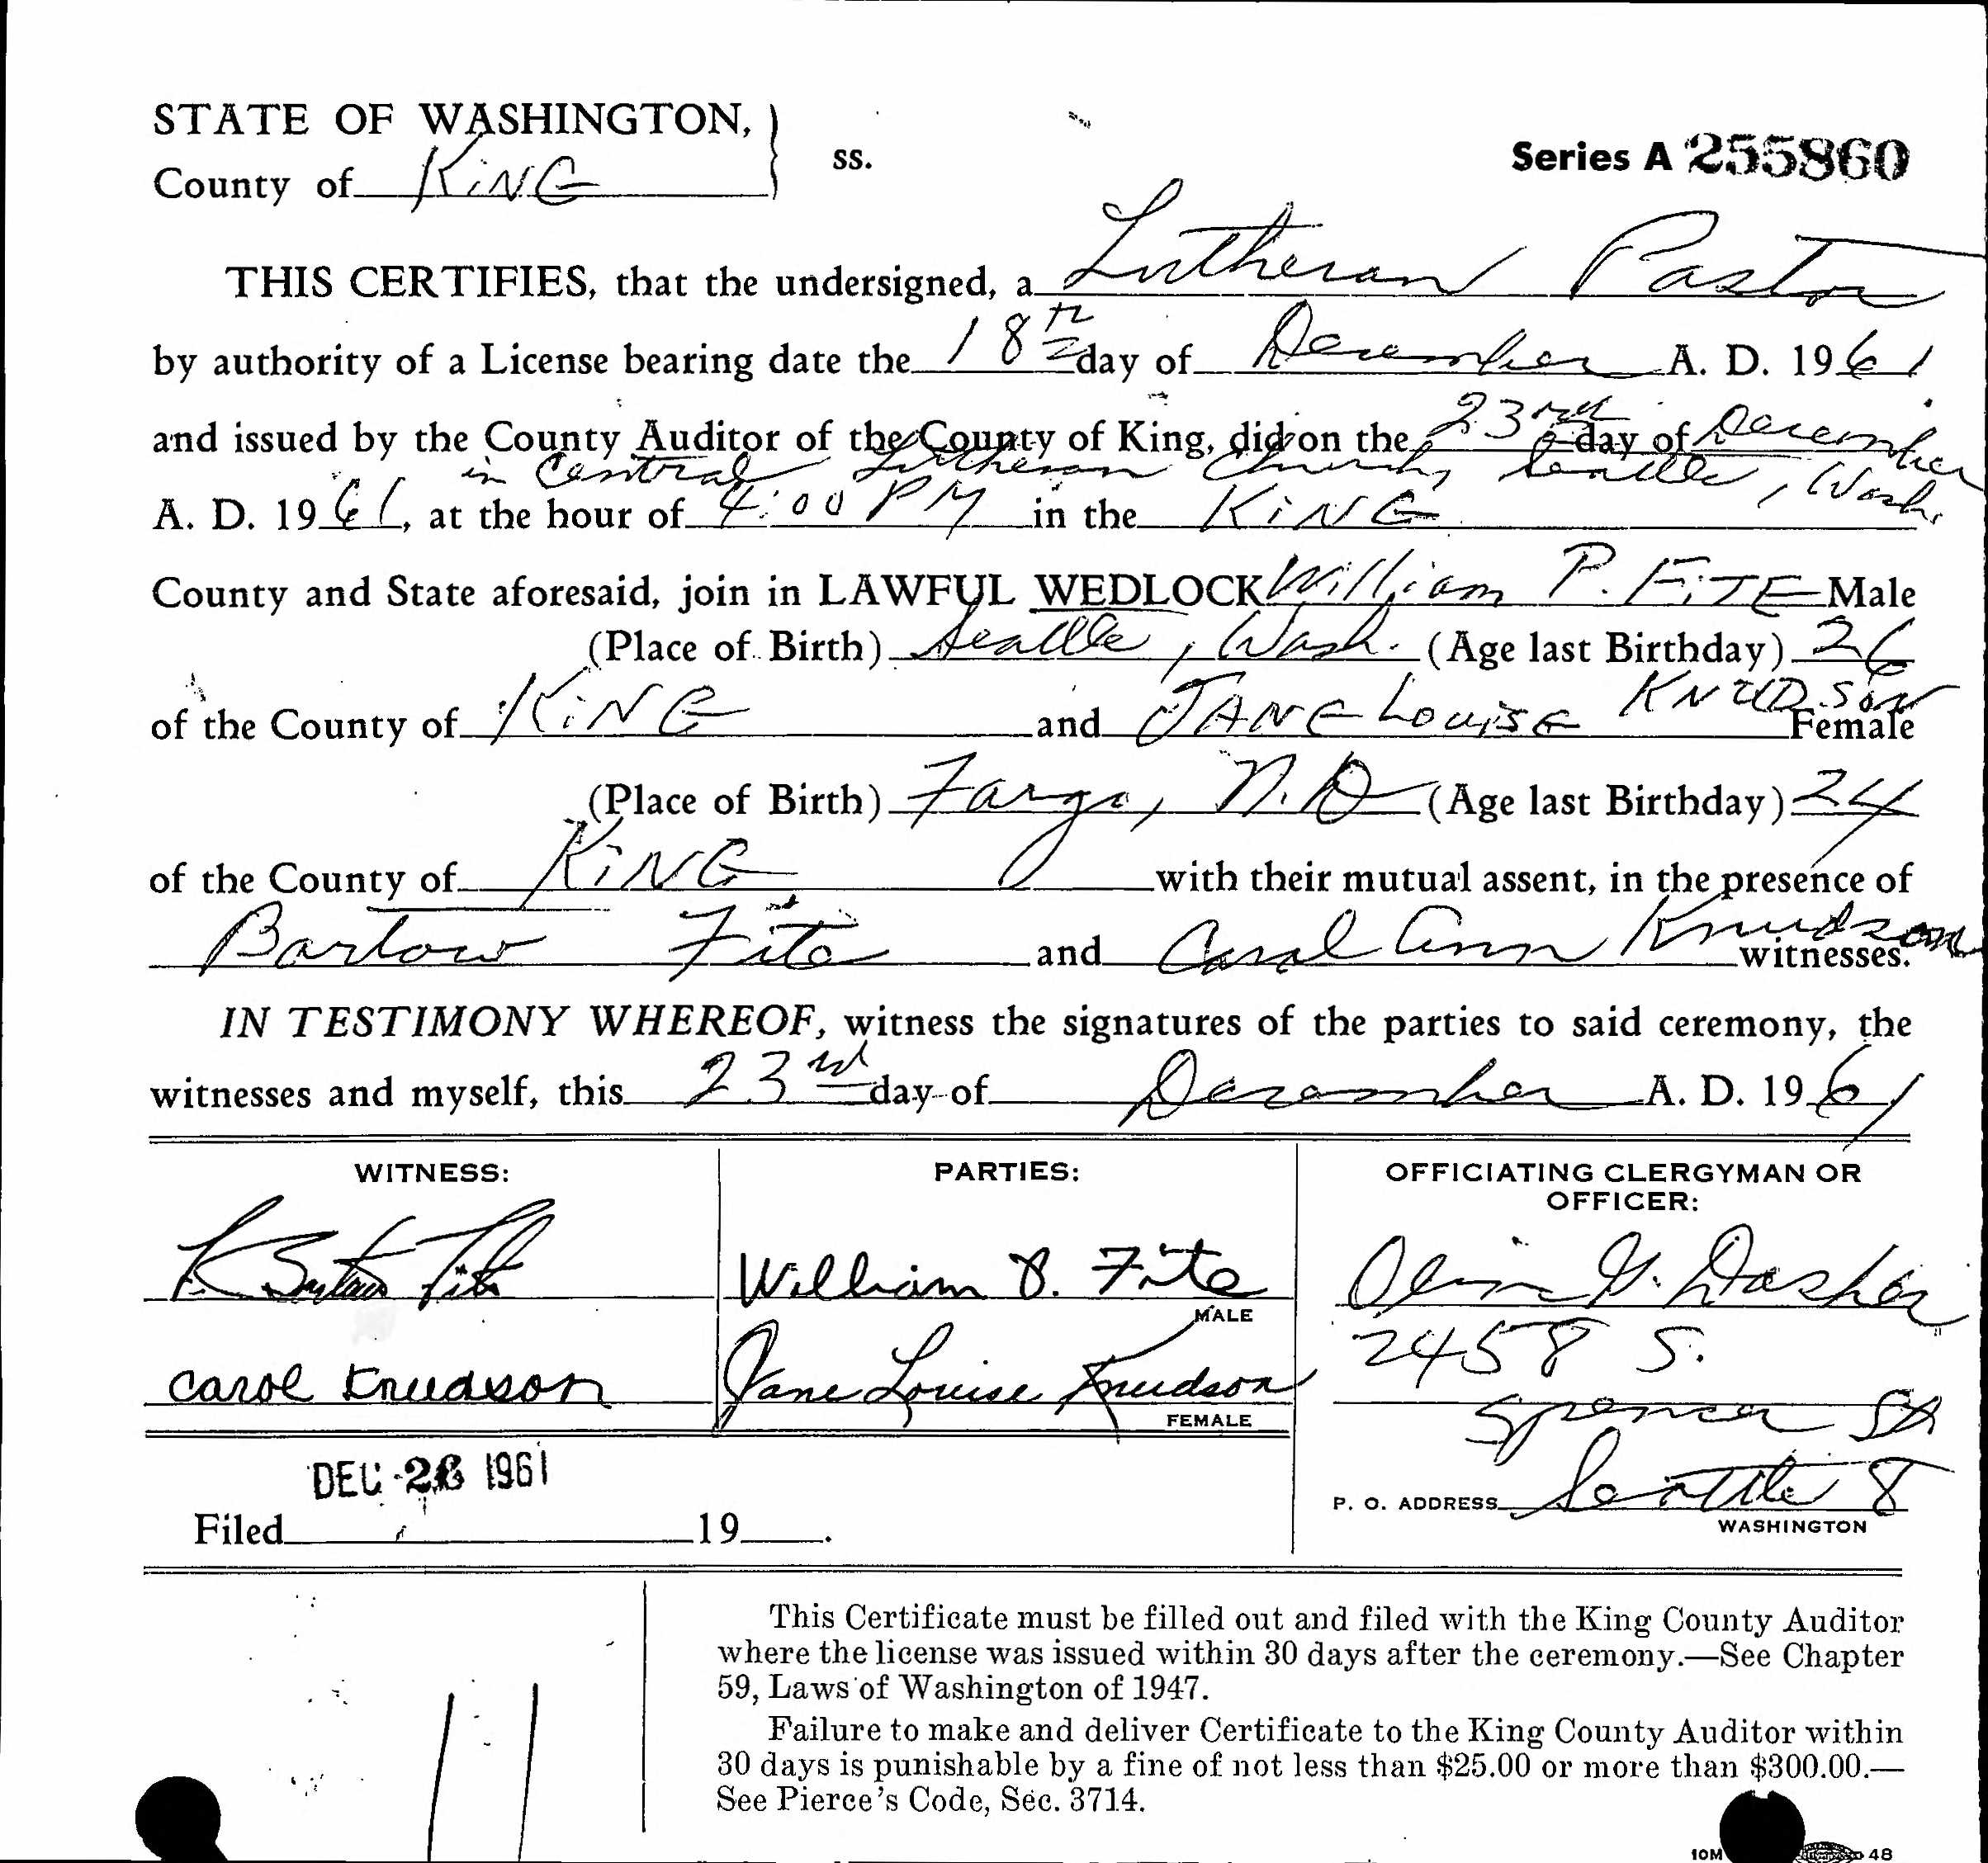 STATE OF WASHINGTON,
County of KiNG ss.
Series A 255860
THIS CERTIFIES, that the undersigned, a Lutheran Pastor
by authority of a License bearing date the 18th day of December A. D. 1961
and issued by the County Auditor of the County of King, did on the 23rd day of December
in Central Lutheran Church, Seattle, Wash.
A. D. 1961, at the hour of 4:00 PM in the KiNG
County and State aforesaid, join in LAWFUL WEDLOCK William P. FiTE Male
(Place of Birth) Seattle, Wash. (Age last Birthday) 26
of the County of KiNG and JANE LouiSE KNUDSON Female
(Place of Birth) Fargo, N.D (Age last Birthday) 24
of the County of KiNG with their mutual assent, in the presence of
Barlow Fite and Carol Ann Knudson witnesses.
IN TESTIMONY WHEREOF, witness the signatures of the parties to said ceremony, the
witnesses and myself, this 23rd day of December A. D. 1961
WITNESS:
PARTIES:
OFFICIATING CLERGYMAN OR
OFFICER:
Fite
William P. Fite
MALE
Dasher
2458 S.
Carol Knudson
Jane Louise Knudson
FEMALE
Spencer St
DEC 26 1961
P. O. ADDRESS Seattle 8
WASHINGTON
Filed 19 .
This Certificate must be filled out and filed with the King County Auditor
where the license was issued within 30 days after the ceremony.—See Chapter
59, Laws of Washington of 1947.
Failure to make and deliver Certificate to the King County Auditor within
30 days is punishable by a fine of not less than $25.00 or more than $300.00.—
See Pierce's Code, Sec. 3714.
10M 48